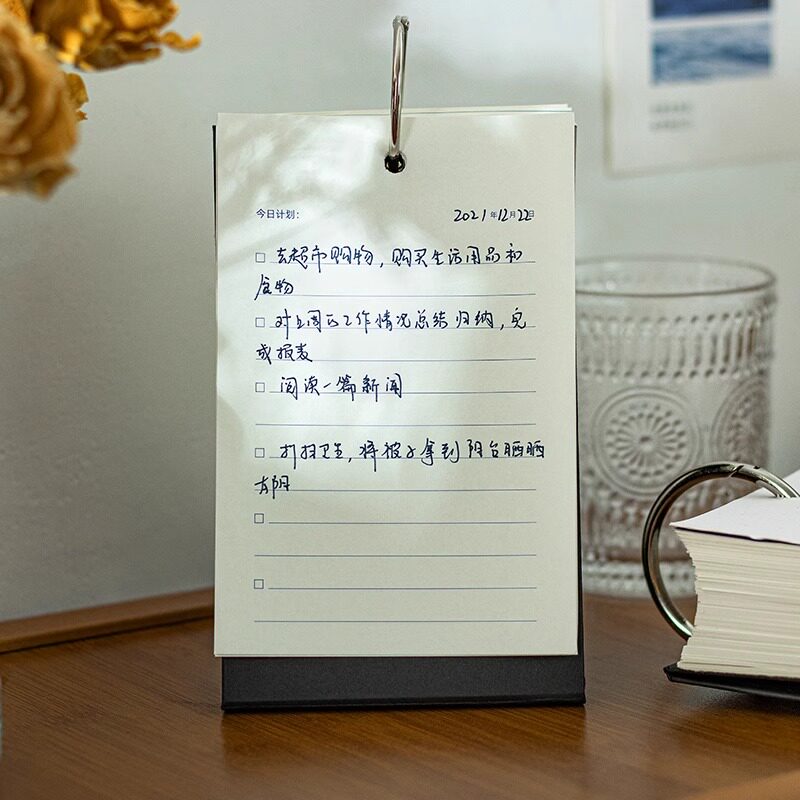 今日计划： 2021年12月22日
□ 去超市购物，购买生活用品和
食物
□ 对上周的工作情况总结归纳，完
成报表
□ 阅读一篇新闻
□ 打扫卫生，将被子拿到阳台晒晒
太阳
□
□